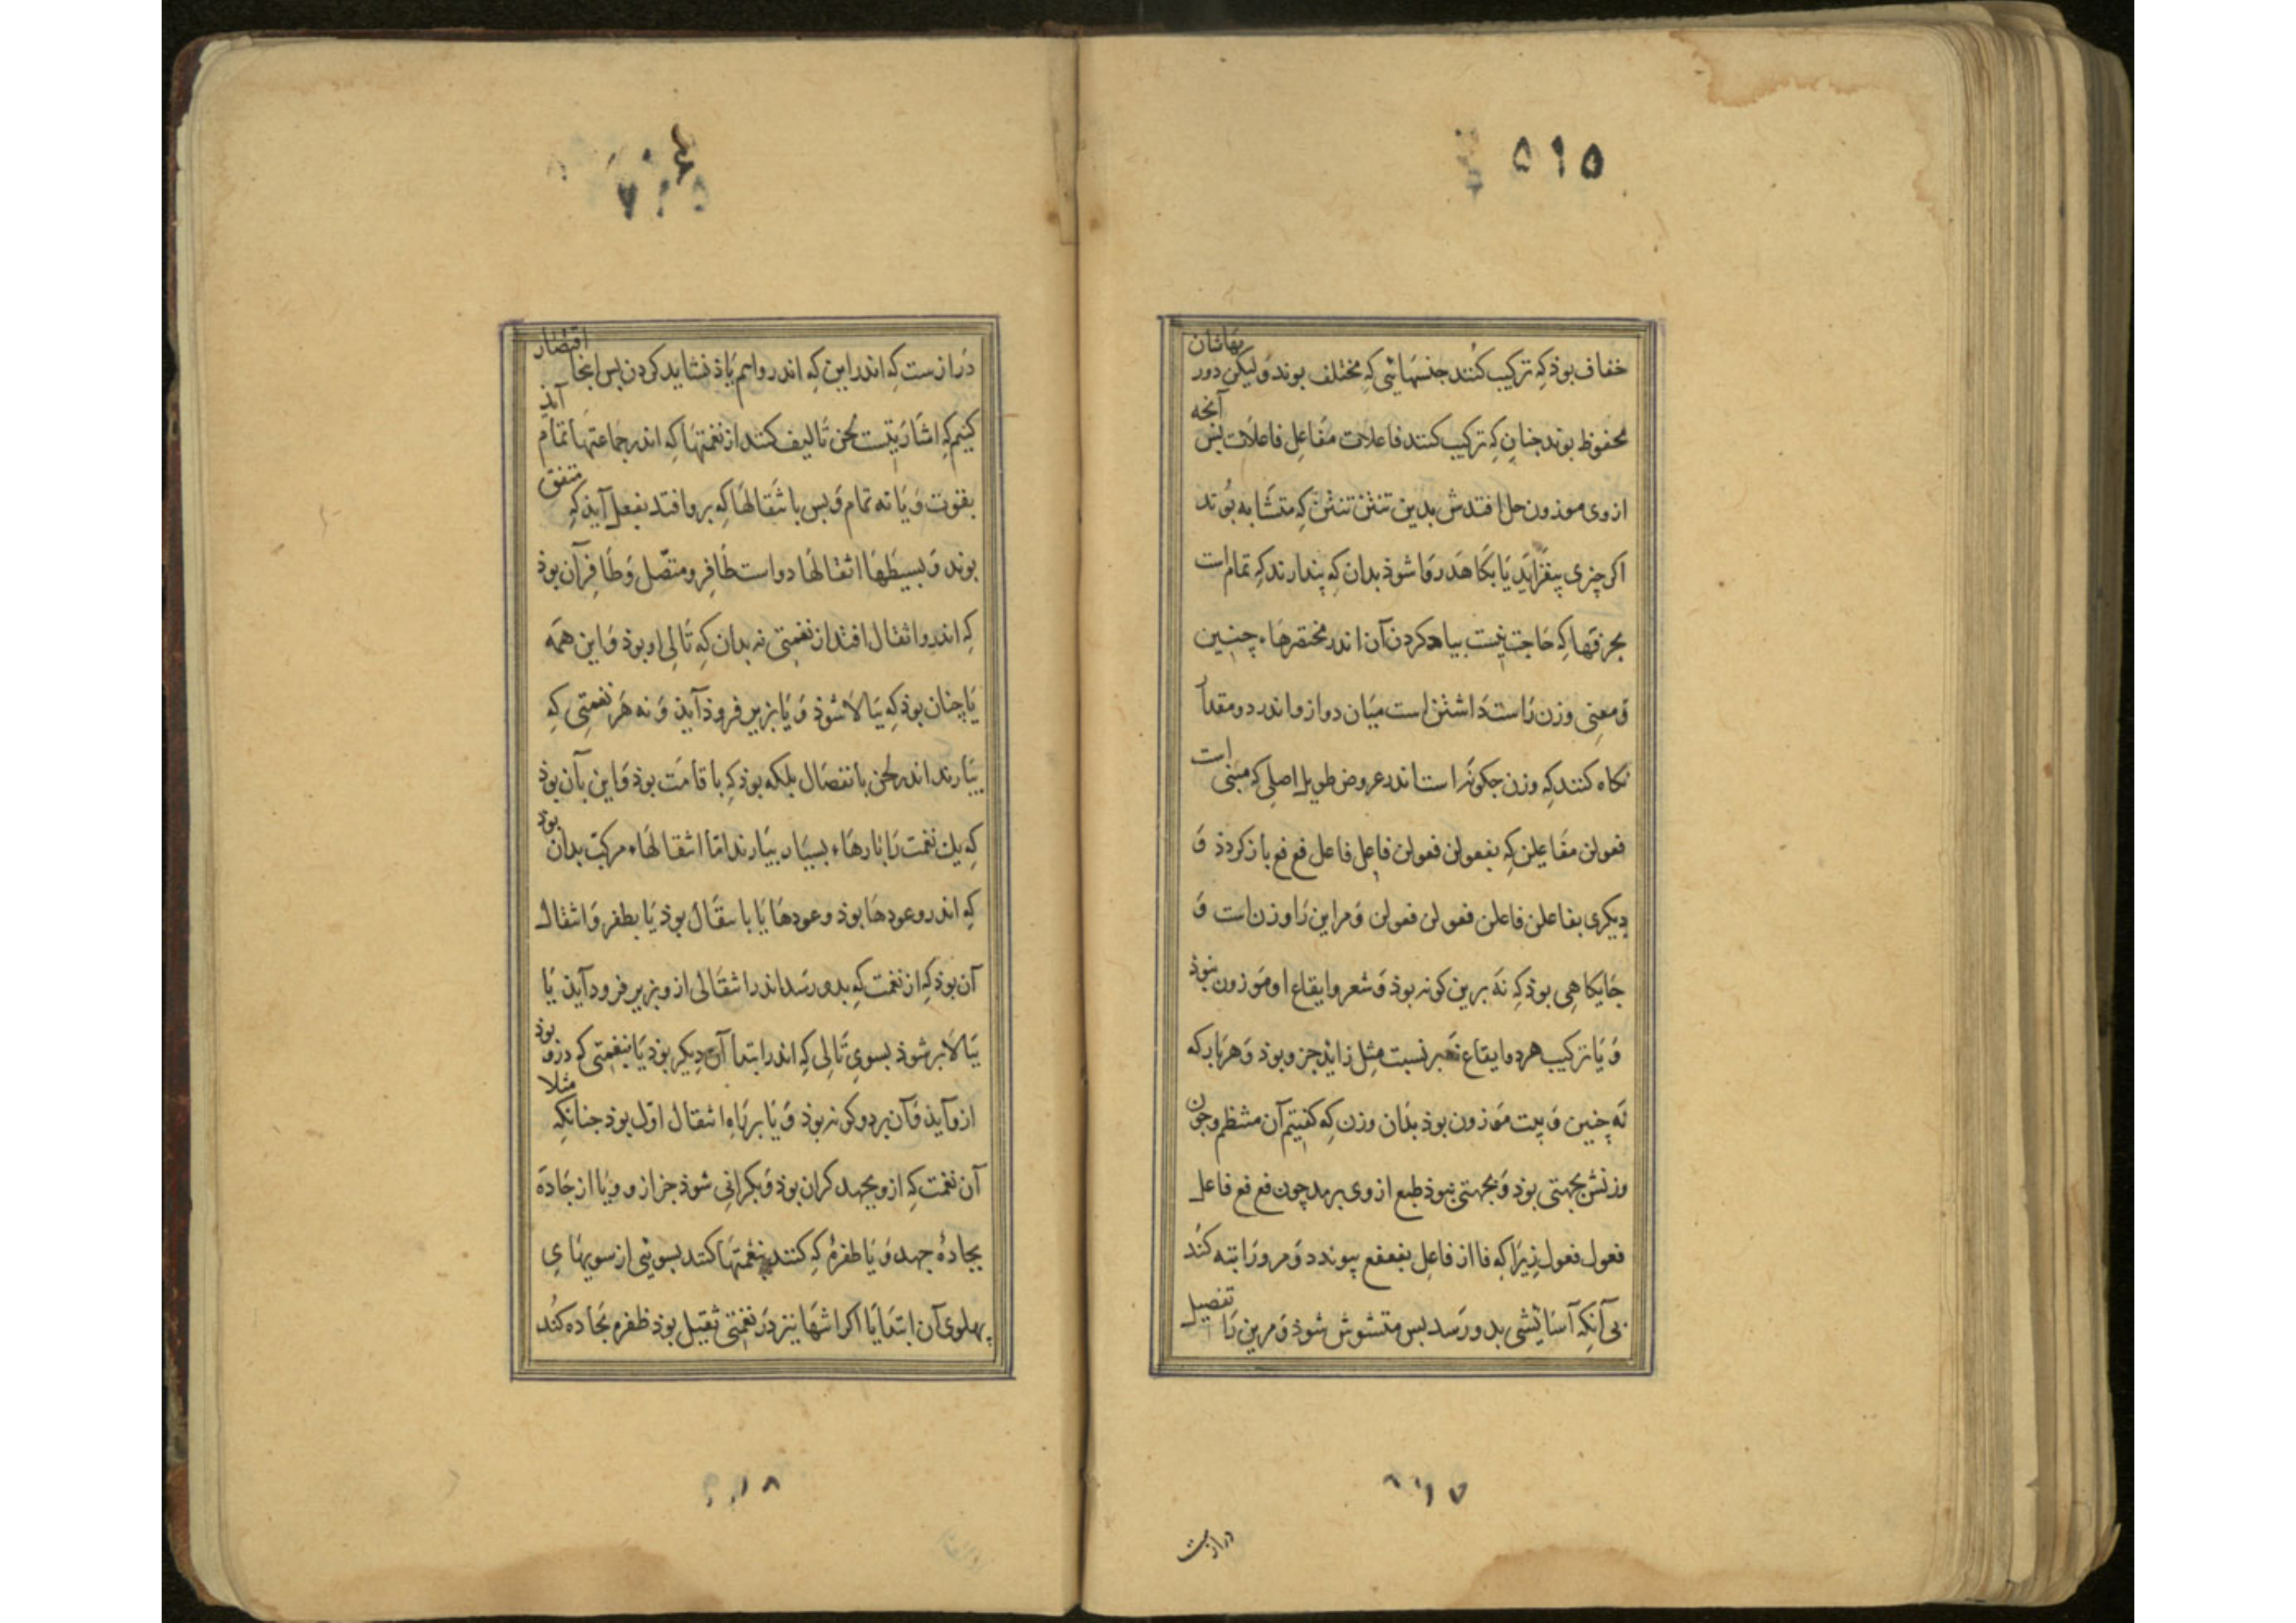 ۵۱۵
خفاف بوذ که ترکیب کنند جنسهائی که مختلف بوند و لیکن دور
بهاشان
محفوظ بوند جنان که ترکیب کنند فاعلات مفاعل فاعلات بس
آنجه
ازوی موزون حل افتدش بدین تنتن تنتن که متشابه بوند
اکر چیزی بیفزاید یا بکاهد روا شوذ بدان که پندارند که تمام است
بجز قها که حاجت نیست بیاد کردن آن اندر مختصرها چنین
و معنی وزن راست داشتن است میان دواز و اندر دو مقدار
نکاه کنند که وزن جکونه است اندر عروض طویل اصلی که مبنی
است
فعولن مفاعیلن که بفعولن فعولن فاعل فاعل فع فع بازکردذ و
دیکری بفاعلن فاعلن فعولن فعولن و مر این را وزن است و
جایکاهی بوذ که نه برین کونه بوذ و شعر و ایقاع او موزون
نبوذ
و یا ترکیب هر دو ایقاع نسبت مثل زاید جزو بوذ و هر بار که
نه چنین و بیت موزون بوذ بدان وزن که کفتیم آن منتظم و جون
وزنش بجهتی بوذ و بجهتی نبوذ طبع ازوی برمد چون فع فع فاعل
فعول فعول زیرا که فا از فاعل بفعفع پیوندد و مرورا تبه کند
بی آنکه آسائشی بدو رسد بس متشوش شوذ و مرین را
تفصیل
۱۷
دراز ست
دراز ست که اندر این که اندرو اسم یاذ نشاید کردن بس اینجا
اقتصار
کنیم که اشاریتست لحن تالیف کنند از نغمتها که اندر جماعتها تمام
آید
بقوت و یا نه تمام و بس با نتقالها که برو افتد بفعل آیذ که
متفق
بوند و بسیطها انتقالها دو است طافر و متصل و طافر آن بوذ
که اندرو انتقال افتد از نغمتی نه بدان که تالی او بوذ و این همه
یا چنان بوذ که ببالا شوذ و یا بزیر فروذ آیذ و نه هر نغمتی که
بیارند اندر لحن با نتقال بلکه بوذ که با قامت بوذ و این بآن بوذ
که یک نغمت را بارها بسیار بیارند اما انتقالها مرکب بدان
بوذ
که اندرو عودها بوذ و عودها یا با نتقال بوذ یا بطفر و انتقال
آن بوذ که از نغمت که بدو رسد اندر انتقالی ازو بزیر فرود آیذ یا
ببالا بر شوذ بسوی تالی که اندر ابتدا آن دیکر بوذ یا بنغمتی که درو
بوذ
ازو آیذ و آن بر دو کونه بوذ و یا بر راه انتقال اول بوذ جنانکه
مثلا
آن نغمت که ازو بجهد کران بوذ و بکرانی شوذ جز ازو و یا از جاده
بجاده جهد و یا طفره که کنند بنغمتها کنند بسوئی از سویهای
پهلوی آن ابتدا یا اکر انتها نیز در نغمتی ثقیل بوذ طفره بجاده کند
۱۸